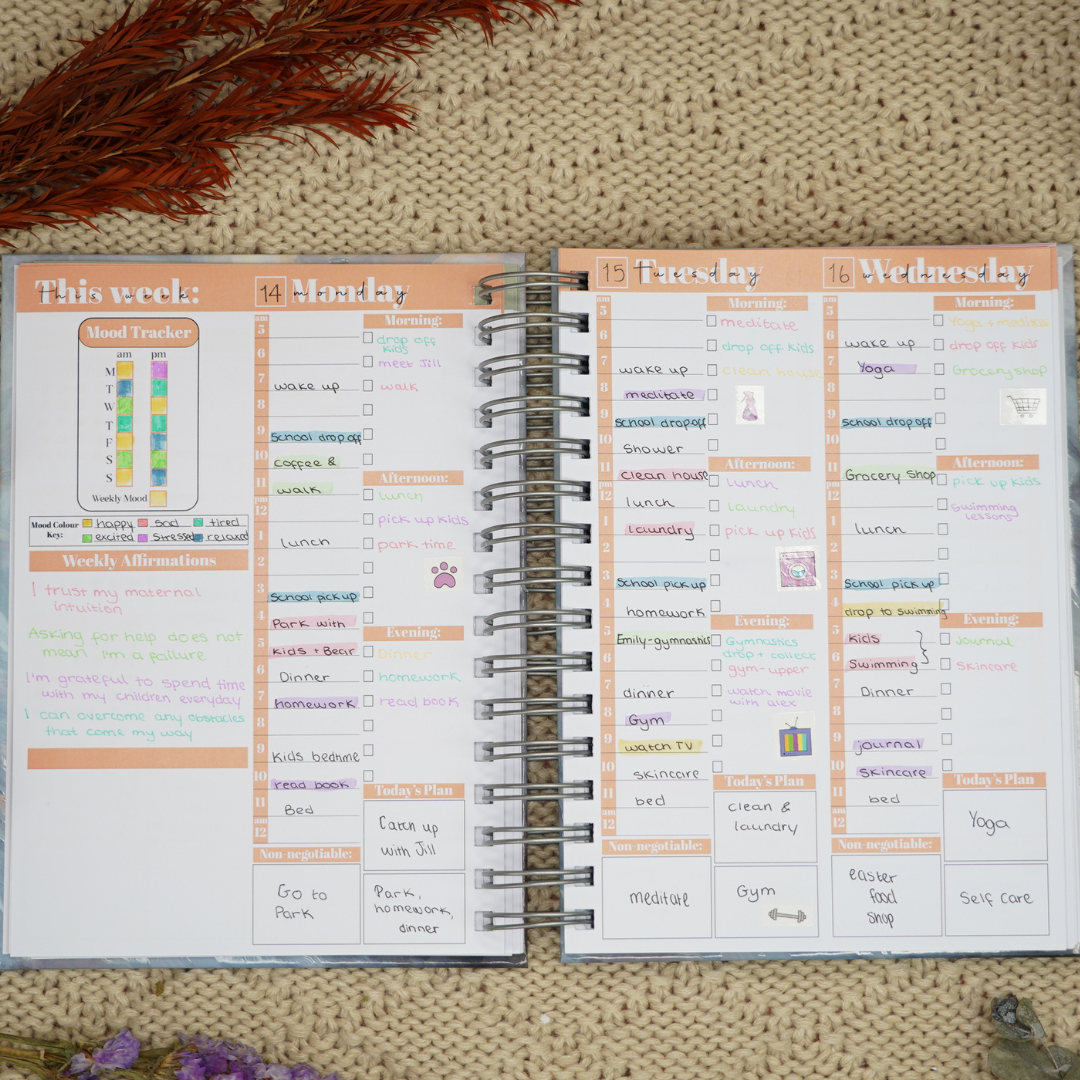 This week:
Mood Tracker
am pm
M
T
W
T
F
S
S
Weekly Mood
Mood Colour Key:
happy sad tired
excited stressed relaxed
Weekly Affirmations
I trust my maternal
intuition
Asking for help does not
mean I'm a failure
I'm grateful to spend time
with my children everyday
I can overcome any obstacles
that come my way
14 Monday
monday
am
5
6
7 wake up
8
9 School drop off
10 coffee &
11 walk
pm
12
1 lunch
2
3 School pick up
4 Park with
5 kids + Bear
6 Dinner
7 homework
8
9 Kids bedtime
10 read book
11 Bed
am
12
Morning:
drop off
kids
meet Jill
walk
Afternoon:
lunch
pick up kids
park time
Evening:
Dinner
homework
read book
Today's Plan
Catch up
with Jill
Non-negotiable:
Go to
Park
Park,
homework,
dinner
15 Tuesday
Tuesday
am
5
6
7 wake up
8 meditate
9 School drop off
10 Shower
11 clean house
pm
12 lunch
1 laundry
2
3 School pick up
4 homework
5 Emily-gymnastics
6
7 dinner
8 Gym
9 watch TV
10 skincare
11 bed
am
12
Morning:
meditate
drop off kids
clean house
Afternoon:
Lunch
laundry
pick up kids
Evening:
Gymnastics
drop + collect
gym-upper
watch movie
with alex
Today's Plan
clean &
laundry
Non-negotiable:
meditate
Gym
16 Wednesday
wednesday
am
5
6 wake up
7 Yoga
8
9 School drop off
10
11 Grocery Shop
pm
12
1 lunch
2
3 School pick up
4 drop to swimming
5 kids
6 Swimming
7 Dinner
8
9 journal
10 skincare
11 bed
am
12
Morning:
Yoga +
drop off kids
Grocery shop
Afternoon:
pick up kids
swimming
lessons
Evening:
Journal
skincare
Today's Plan
Yoga
Non-negotiable:
easter
food
shop
Self care